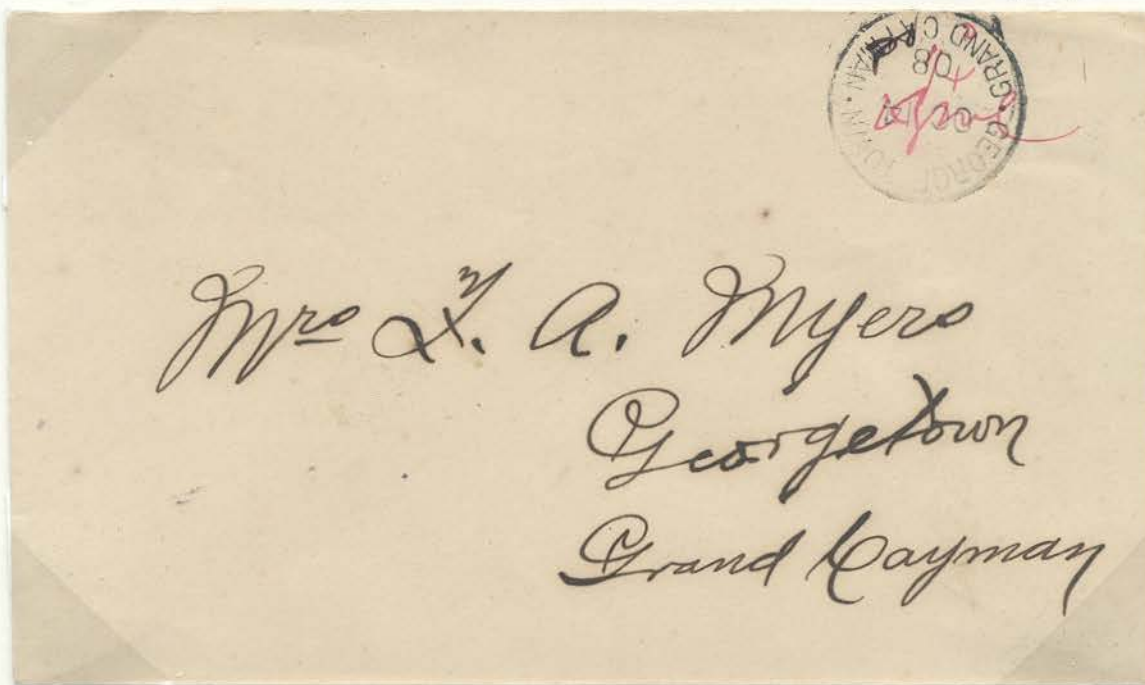 GEORGE TOWN · GRAND CAYMAN ·
OC
08
Mrs A. Myers
Georgetown
Grand Cayman